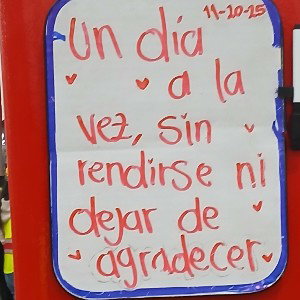 11-10-25
Un día
a la
vez, sin
rendirse ni
dejar de
agradecer